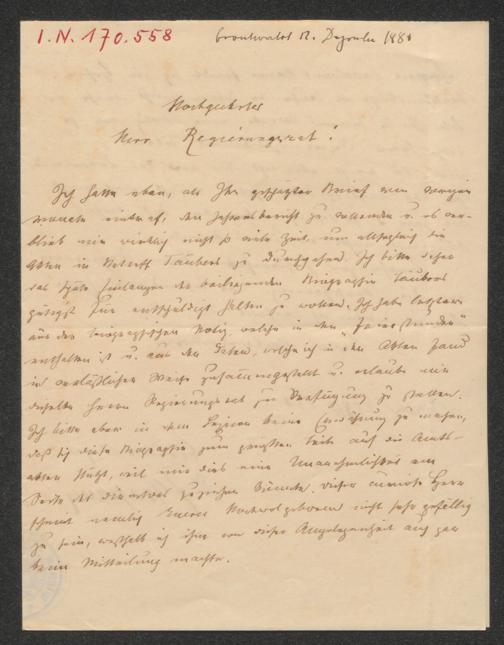 I.N. 170.558
12. Dezember 1881
Hochgeehrter
Herr Regierungsrat!
Ich hatte eben, als Ihr geschätzter Brief vom vorigen
Monate eintraf, den Jahresbericht zu vollenden u. es ver-
blieb mir wirklich nicht so viele Zeit, um allsogleich die
Akten in Betreff Taubers zu durchgehen. Ich bitte daher
das späte Einlangen der beiliegenden Biographie Taubers
gütigst für entschuldigt halten zu wollen. Ich habe letztere
aus der biographischen Notiz, welche in den „Feierstunden“
enthalten ist u. aus den Daten, welche ich in den Akten fand
in verläßlicher Weise zusammengestellt u. erlaube mir
dieselbe Herrn Regierungsrat zur Verfügung zu stellen.
Ich bitte aber in dem Lexicon keine Erwähnung zu machen,
daß sich diese Biographie zum großen Teile auf die Amts-
akten stützt, weil mir dies eine Unannehmlichkeit von
Seite des Direktors zuziehen könnte. Dieser Herr
scheint nemlich Euerer Hochwolgeboren nicht sehr gefällig
zu sein, weßhalb ich ihm von dieser Angelegenheit auch gar
keine Mitteilung machte.